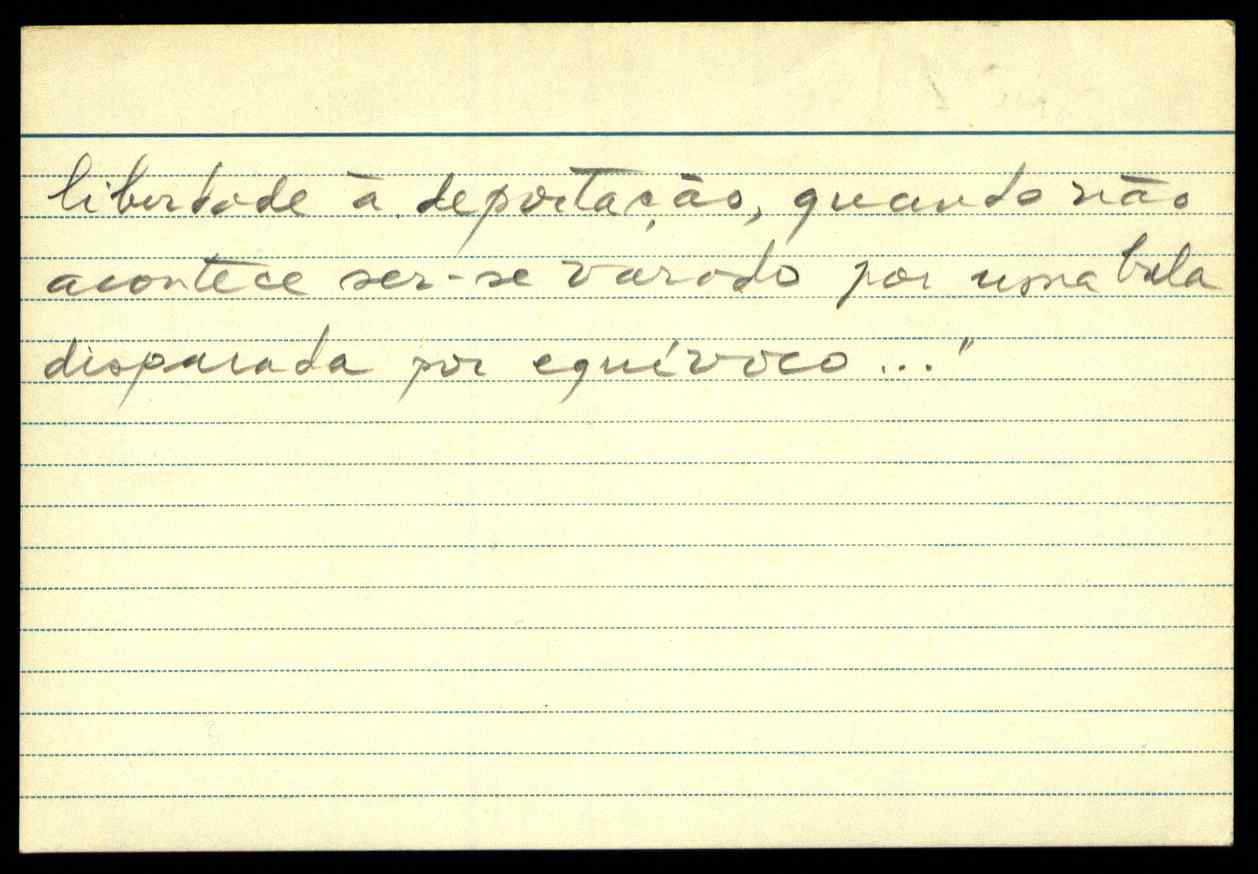 libertade à deportação, quando não
acontece ser-se varado por uma bala
disparada por equívoco..."